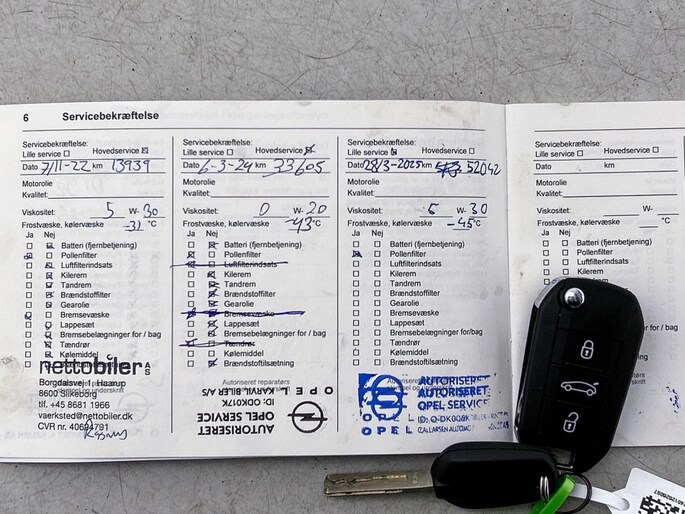 6 Servicebekræftelse
Servicebekræftelse:
Lille service Hovedservice
Dato 7/11-22 km 13939
Motorolie
Kvalitet:
Viskositet: 5 W- 30
Frostvæske, kølervæske
-31 °C
Ja Nej
Batteri (fjernbetjening)
Pollenfilter
Luftfilterindsats
Kilerem
Tandrem
Brændstoffilter
Gearolie
Bremsevæske
Lappesæt
Bremsebelægninger for / bag
Tændrør
Kølemiddel
nettobiler A/S
Borgdalsvej 1, Haarup
8600 Silkeborg
tlf. +45 8681 1966
vaerksted@nettobiler.dk
CVR nr. 40694791
Servicebekræftelse:
Lille service Hovedservice
Dato 6-3-24 km 33605
Motorolie
Kvalitet:
Viskositet: 0 W- 20
Frostvæske, kølervæske
-43 °C
Ja Nej
Batteri (fjernbetjening)
Pollenfilter
Luftfilterindsats
Kilerem
Tandrem
Brændstoffilter
Gearolie
Bremsevæske
Lappesæt
Bremsebelægninger for / bag
Tændrør
Kølemiddel
Brændstoftilsætning
Autoriseret reparatørs
AUTORISERET
OPEL SERVICE
OPEL
Servicebekræftelse:
Lille service Hovedservice
Dato 28/3-2025 km 52042
Motorolie
Kvalitet:
Viskositet: W- 30
Frostvæske, kølervæske
-45 °C
Ja Nej
Batteri (fjernbetjening)
Pollenfilter
Luftfilterindsats
Kilerem
Tandrem
Brændstoffilter
Gearolie
Bremsevæske
Lappesæt
Bremsebelægninger for/bag
Tændrør
Kølemiddel
Brændstoftilsætning
AUTORISERET
AUTORISERET
OPEL SERVICE
OPEL
Servicebekræftelse:
Lille service Hovedservice
Dato km
Motorolie
Kvalitet:
Viskositet: W-
Frostvæske, kølervæske
°C
Ja Nej
Batteri (fjernbetjening)
Pollenfilter